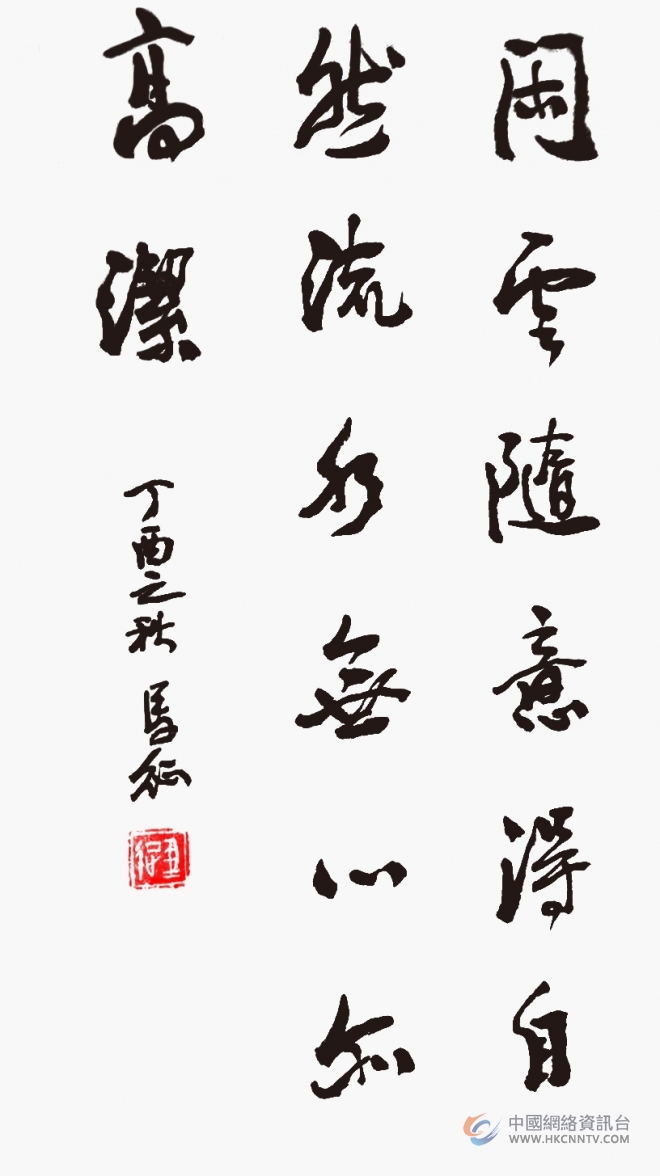 闲雲随意得自
然流水無心亦
高潔
丁酉之秋 馬征
中國網絡資訊台
WWW.HKCNNTV.COM